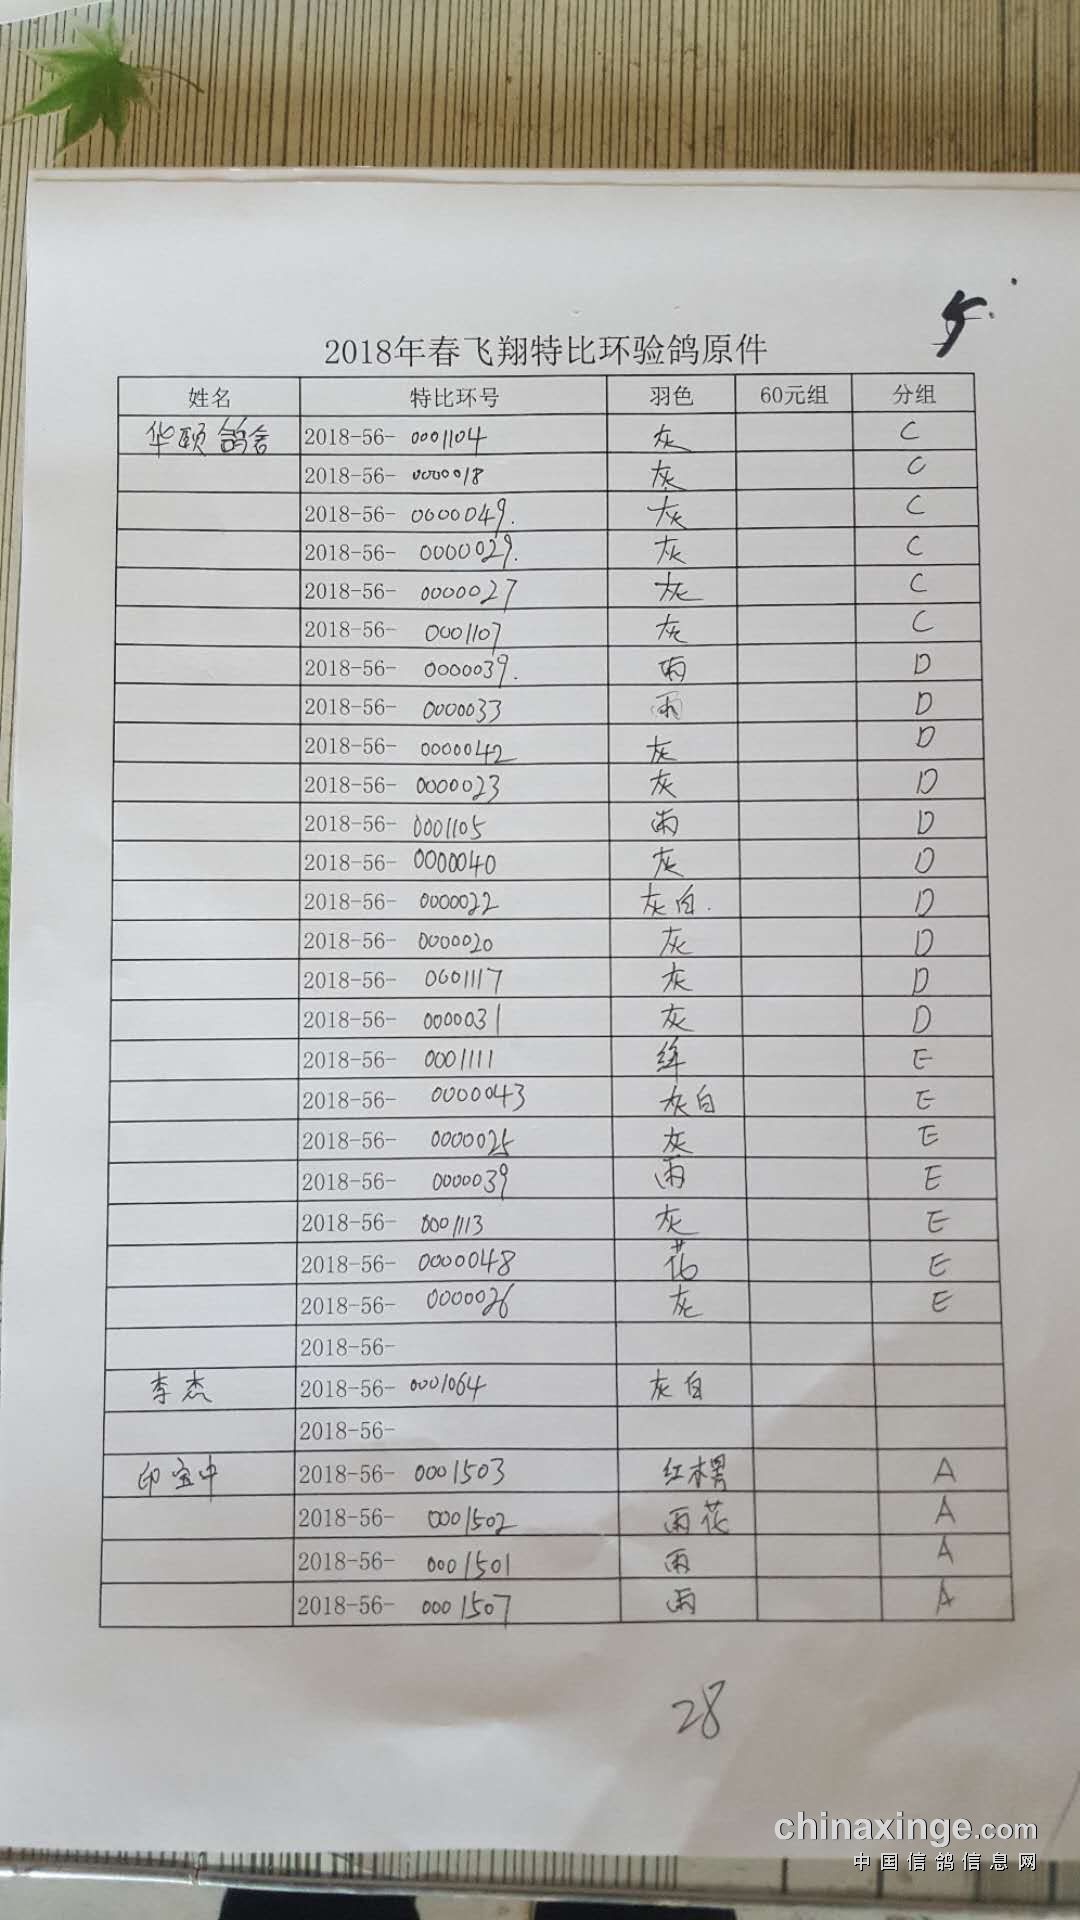 5.
2018年春飞翔特比环验鸽原件
姓名 特比环号 羽色 60元组 分组
华颐鸽舍 2018-56- 0001104 灰 C
2018-56- 0000018 灰 C
2018-56- 0000049. 灰 C
2018-56- 0000029. 灰 C
2018-56- 0000027 灰 C
2018-56- 0001107 灰 C
2018-56- 0000039. 雨 D
2018-56- 0000033 雨 D
2018-56- 0000042 灰 D
2018-56- 0000023 灰 D
2018-56- 0001105 雨 D
2018-56- 0000040 灰 D
2018-56- 0000022 灰白. D
2018-56- 0000020 灰 D
2018-56- 0001117 灰 D
2018-56- 0000031 灰 D
2018-56- 0001111 绛 E
2018-56- 0000043 灰白 E
2018-56- 0000025 灰 E
2018-56- 0000039 雨 E
2018-56- 0001113 灰 E
2018-56- 0000048 花 E
2018-56- 0000026 灰 E
2018-56-
李杰 2018-56- 0001064 灰白
2018-56-
印宝中 2018-56- 0001503 红楞 A
2018-56- 0001502 雨花 A
2018-56- 0001501 雨 A
2018-56- 0001507 雨 A
28
chinaxinge.com
中国信鸽信息网